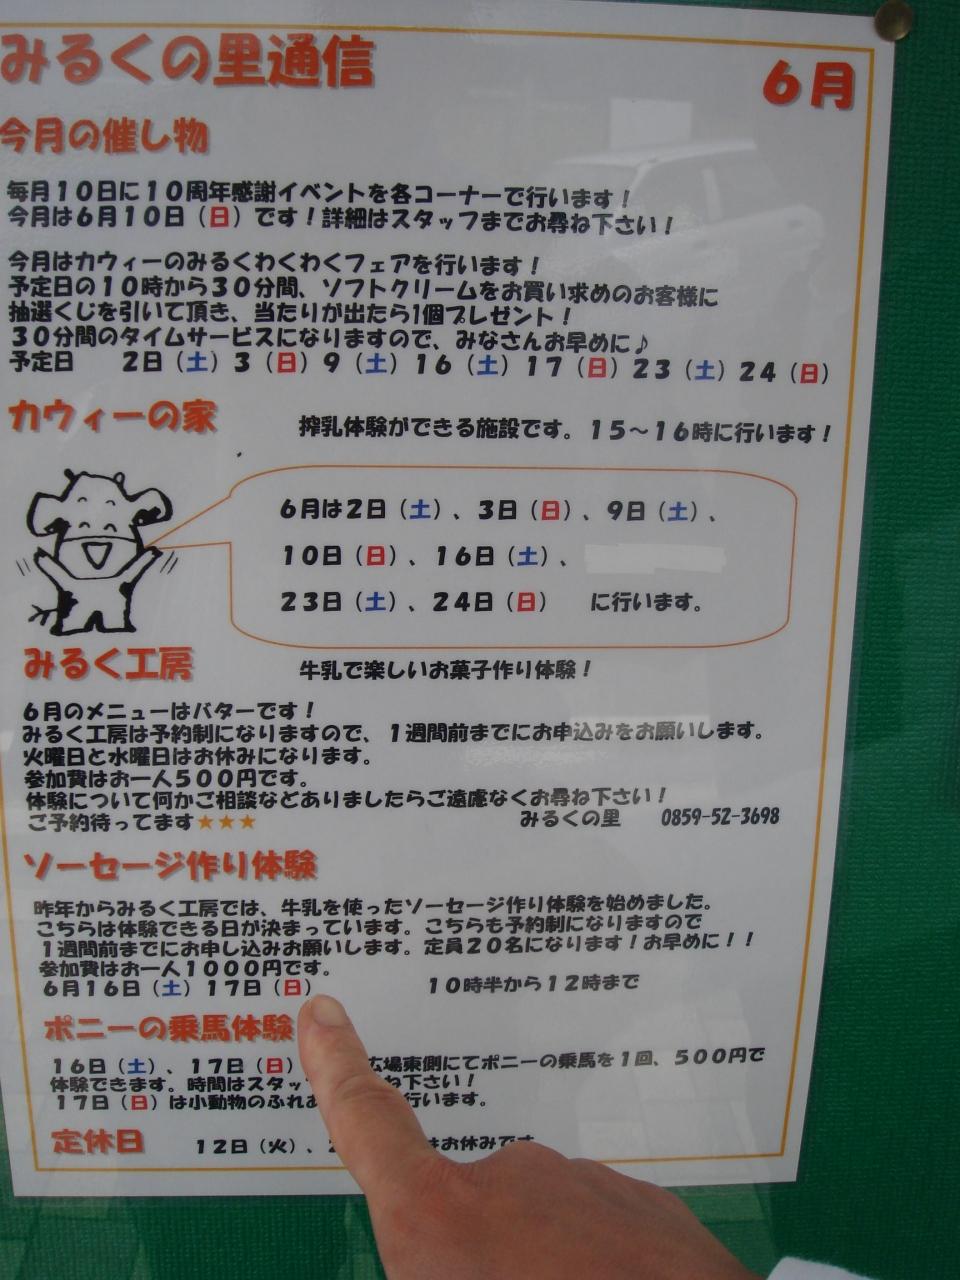 みるくの里通信
6月
今月の催し物
毎月10日に10周年感謝イベントを各コーナーで行います!
今月は6月10日(日)です!詳細はスタッフまでお尋ね下さい!
今月はカウィーのみるくわくわくフェアを行います!
予定日の10時から30分間、ソフトクリームをお買い求めのお客様に
抽選くじを引いて頂き、当たりが出たら1個プレゼント!
30分間のタイムサービスになりますので、みなさんお早めに♪
予定日 2日(土)3(日)9(土)16(土)17(日)23(土)24(日)
カウィーの家 搾乳体験ができる施設です。15~16時に行います!
6月は2日(土)、3日(日)、9日(土)、
10日(日)、16日(土)、
23日(土)、24日(日) に行います。
みるく工房 牛乳で楽しいお菓子作り体験!
6月のメニューはバターです!
みるく工房は予約制になりますので、1週間前までにお申込みをお願いします。
火曜日と水曜日はお休みになります。
参加費はお一人500円です。
体験について何かご相談などありましたらご遠慮なくお尋ね下さい!
ご予約待ってます★★★ みるくの里 0859-52-3698
ソーセージ作り体験
昨年からみるく工房では、牛乳を使ったソーセージ作り体験を始めました。
こちらは体験できる日が決まっています。こちらも予約制になりますので
1週間前までにお申し込みお願いします。定員20名になります!お早めに!!
参加費はお一人1000円です。
6月16日(土)17日(日) 10時半から12時まで
ポニーの乗馬体験
16日(土)、17日(日) 広場東側にてポニーの乗馬を1回、500円で
体験できます。時間はスタッ ね下さい!
17日(日)は小動物のふれあ 行います。
定休日 12日(火)、 はお休みです